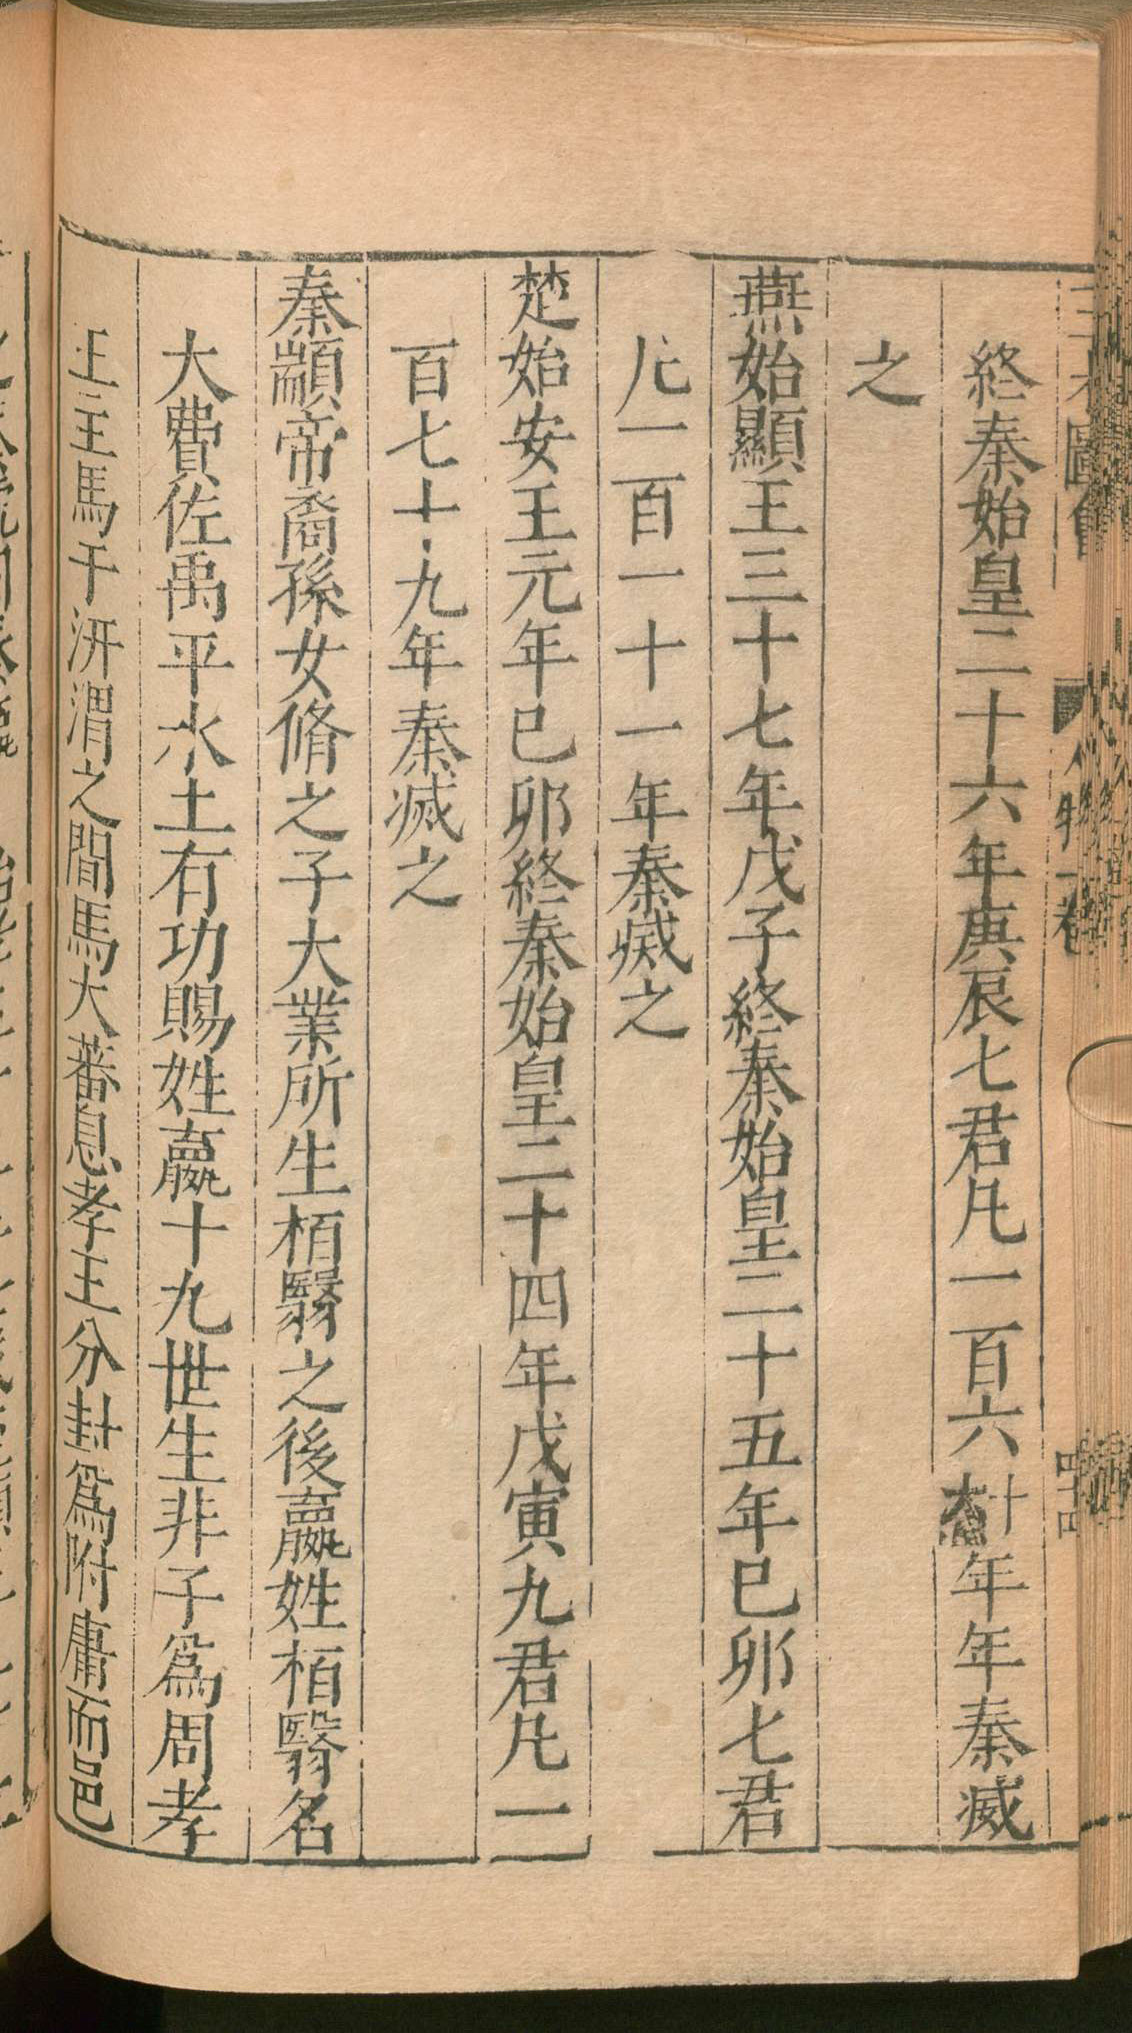 終秦始皇二十六年庚辰七君凡一百六十年年秦滅
之
燕始顯王三十七年戊子終秦始皇二十五年巳卯七君
凡一百一十一年秦滅之
楚始安王元年巳卯終秦始皇二十四年戊寅九君凡一
百七十九年秦滅之
秦顓帝裔孫女脩之子大業所生栢翳之後嬴姓栢翳名
大費佐禹平水土有功賜姓嬴十九世生非子爲周孝
王主馬于汧渭之間馬大蕃息孝王分封爲附庸而邑